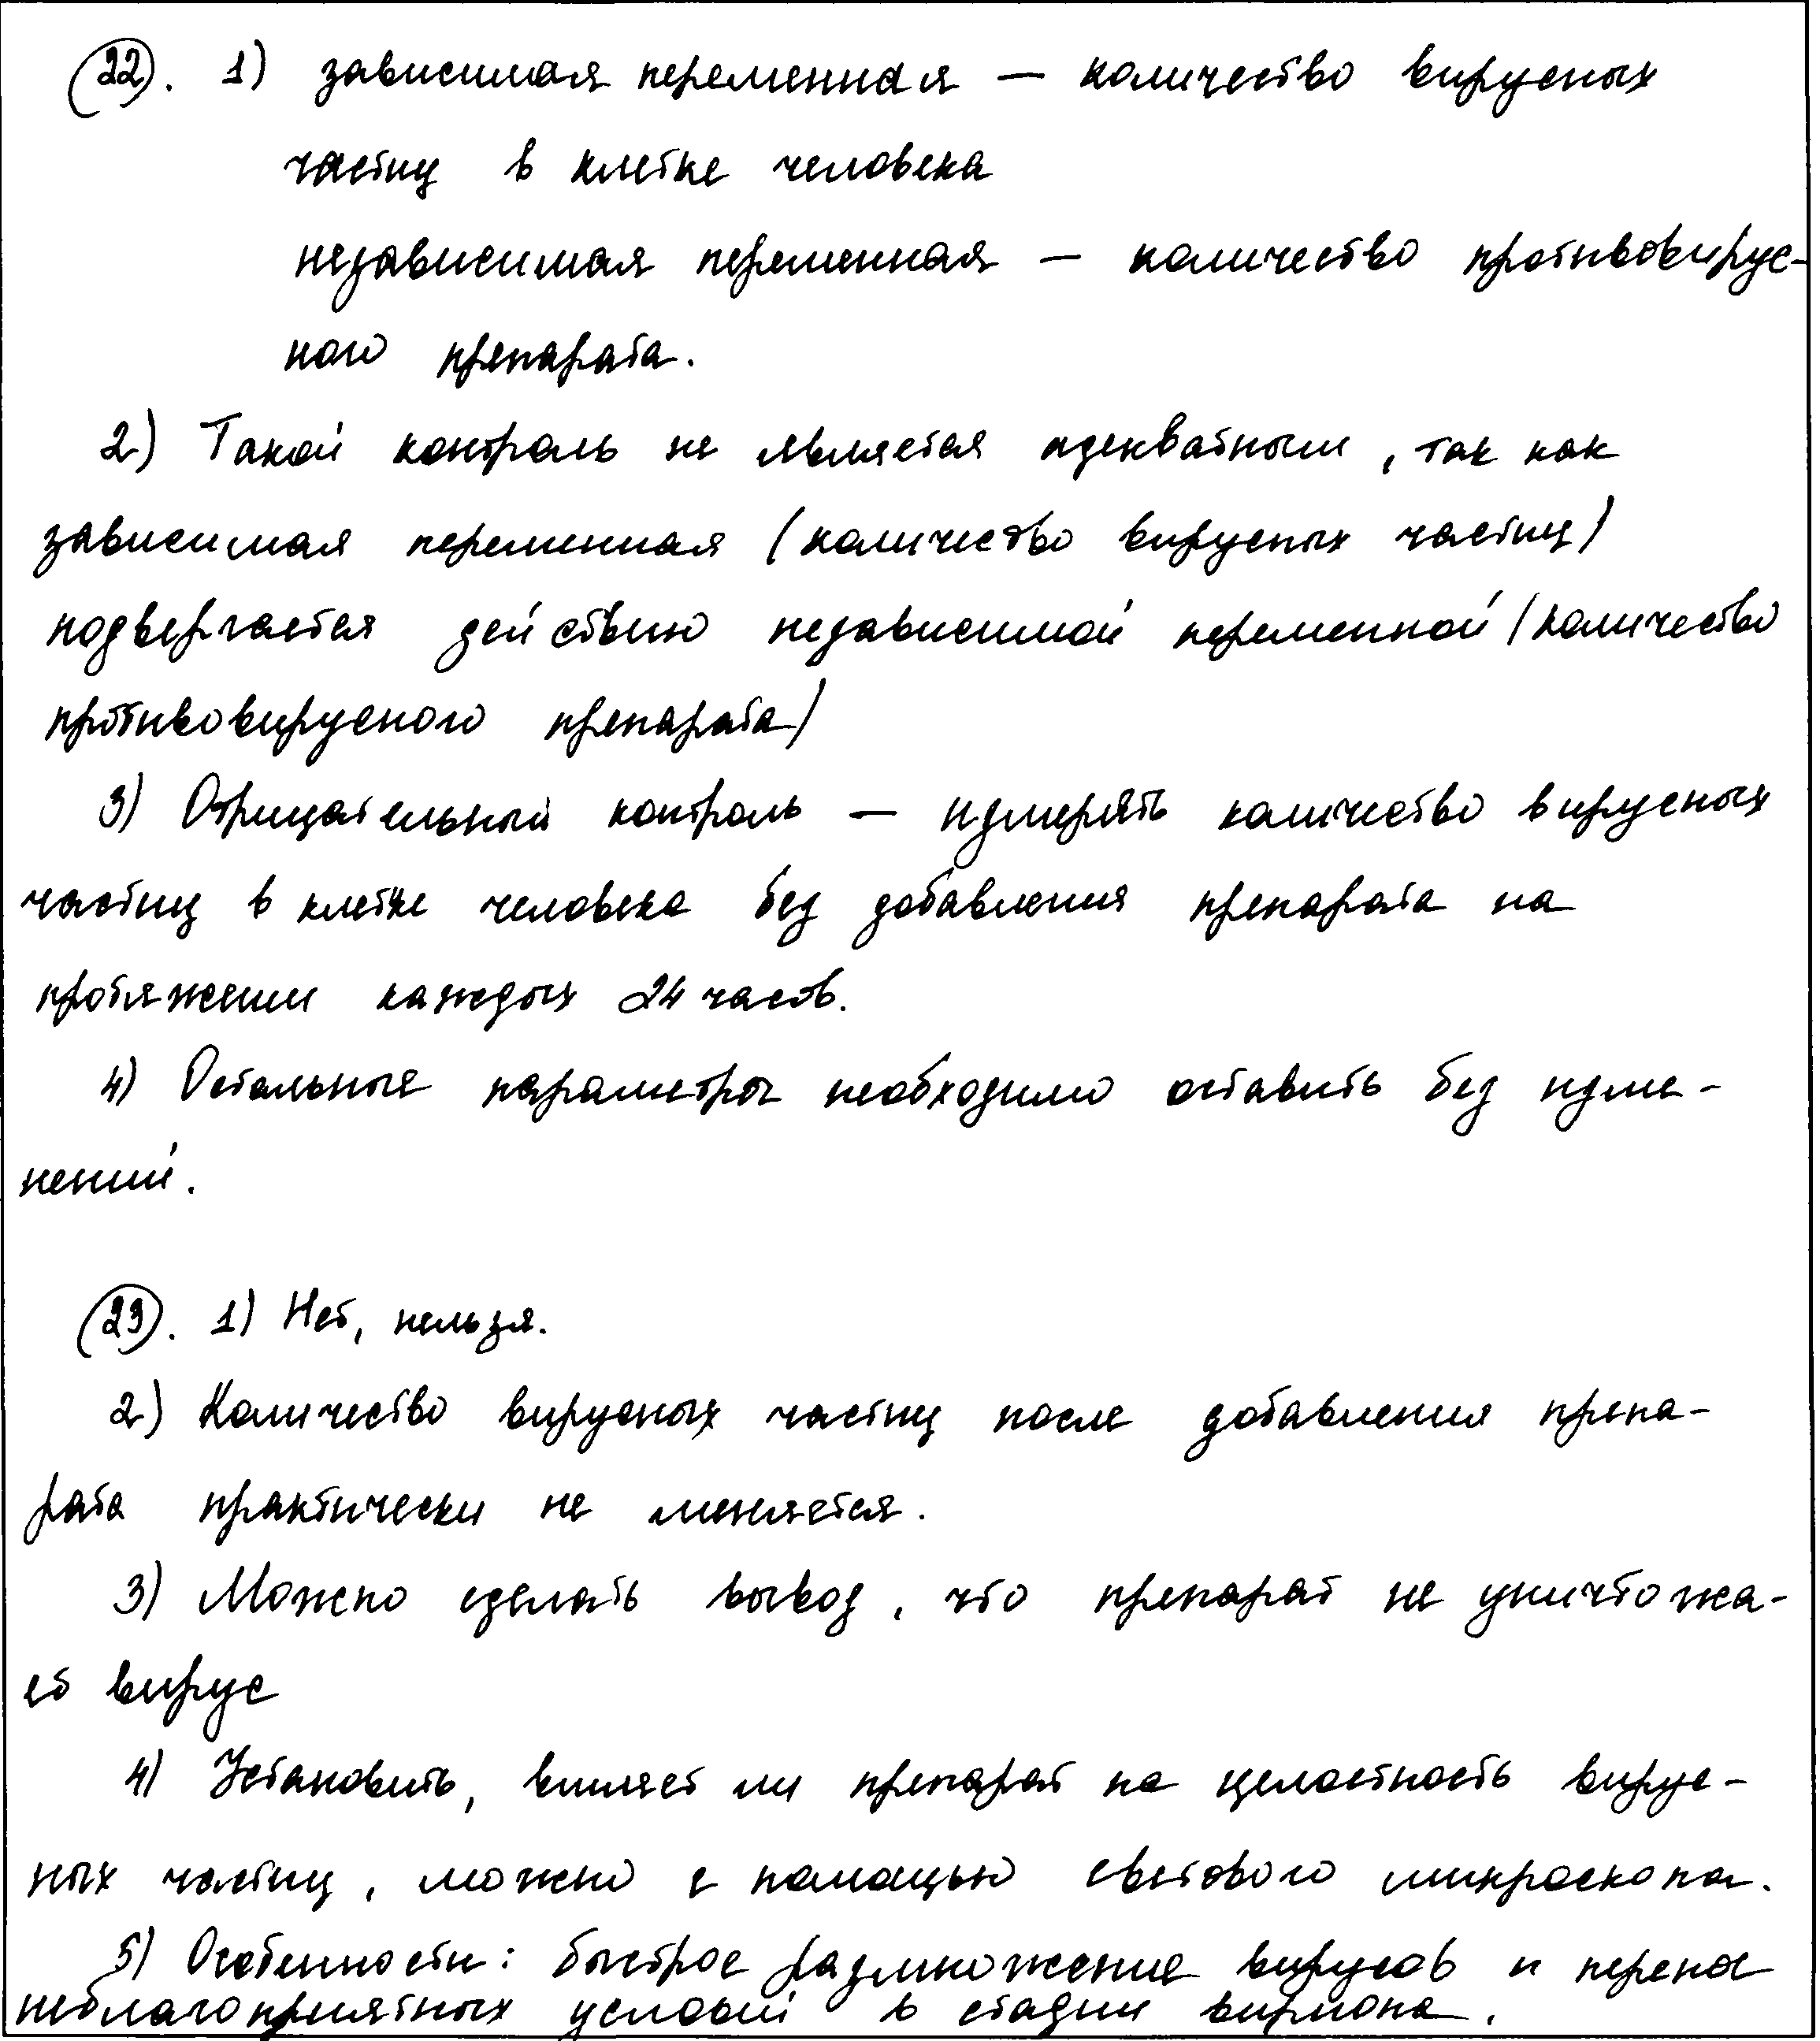 22. 1) зависимая переменная – количество вирусных
частиц в клетке человека
независимая переменная – количество противовирус-
ного препарата.
2) Такой контроль не является адекватным, так как
зависимая переменная (количество вирусных частиц)
подвергается действию независимой переменной (количество
противовирусного препарата)
3) Отрицательный контроль – измерять количество вирусных
частиц в клетке человека без добавления препарата на
протяжении каждых 24 часов.
4) Остальные параметры необходимо оставить без изме-
нений.
23. 1) Нет, нельзя.
2) Количество вирусных частиц после добавления препа-
рата практически не меняется.
3) Можно сделать вывод, что препарат не уничтожа-
ет вирус
4) Установить, влияет ли препарат на целостность вирус-
ных частиц, можно с помощью светового микроскопа.
5) Особенности: быстрое размножение вирусов и перенос
неблагоприятных условий в стадии вириона.